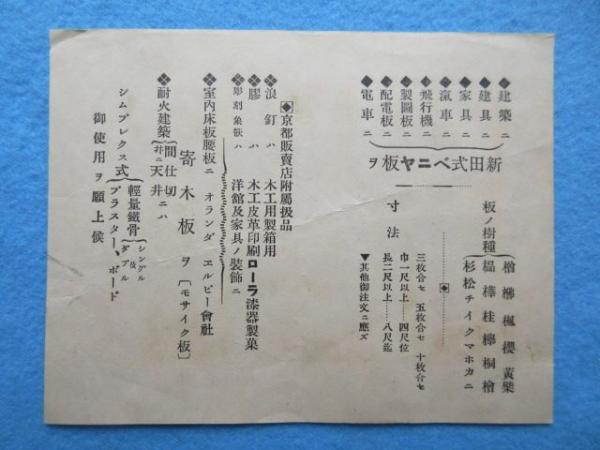 ◆建築ニ
◆建具ニ
◆家具ニ
◆滊車ニ
◆飛行機ニ
◆製圖板ニ
◆配電板ニ
◆電車ニ
新田式ベニヤ板ヲ
板ノ樹種
楓櫻黃檗
樺桂檜
杉松チイクマホカニ
寸法
三枚合セ 五枚合セ 十枚合セ
巾一尺以上……四尺位
長二尺以上……八尺迄
▼其他御注文ニ應ズ
京都販賣店附屬扱品
❖浪釘ハ 木工用製箱用
❖膠ハ 木工皮革印刷ローラ漆器製菓
❖彫刻象嵌ハ 洋舘及家具ノ裝飾ニ
❖室內床板腰板ニ オランダ エルビー會社
寄木板ヲ〔モサイク板〕
❖耐火建築 間仕切 並ニ 天井 ニハ
シムプレクス式 輕量鐵骨 シングル 及 ダブル
プラスター、ボード
御使用ヲ願上候